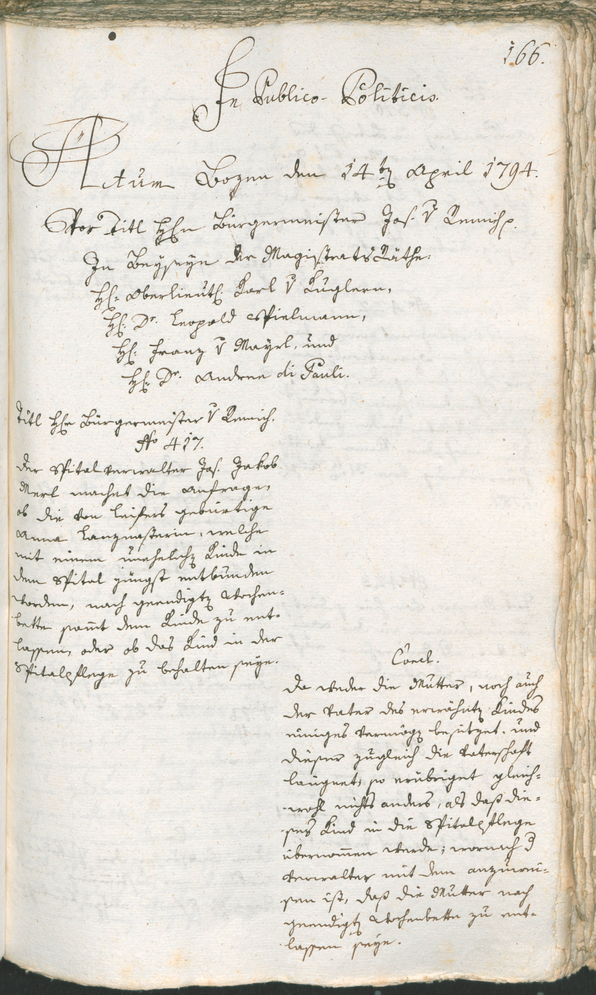 166.
In Publico-Politicis.
Actum Bozen den 14ten April 1794.
Vor Titl Hhn Bürgermeister Jos. v Remich.
In Beyseyn der Magistrats Räthe:
Hh: Oberlieuth Karl v Kuglern,
Hh: Dr. Leopold Spielmann,
Hh: Franz v Mayrl, und
Hh: Dr. Andree di Pauli.
Titl Hhn Bürgermeister v Remich.
No 417.
Der Spitalverwalter Jos. Jakob
Merl machet die Anfrage:
ob die von Leifers gebürtige
Anna Lanznasterin, welche
mit einem unehelichen Kinde in
dem Spital jüngst entbunden
worden, nach geendigten Wochen-
bette samt dem Kinde zu ent-
lassen, oder ob das Kind in der
Spitalpflege zu behalten seye.
Concl.
Da weder die Mutter, noch auch
der Vater des erwähnten Kindes
einiges Vermögen besitzet, und
dieser zugleich die Vaterschaft
läugnet; so erübriget gleich-
wohl nichts anders, als daß die-
ses Kind in die Spitalpflege
übernommen werde; wornach d
Verwalter mit dem anzuwei-
sen ist, daß die Mutter nach
geendigten Wochenbette zu ent-
lassen seye.